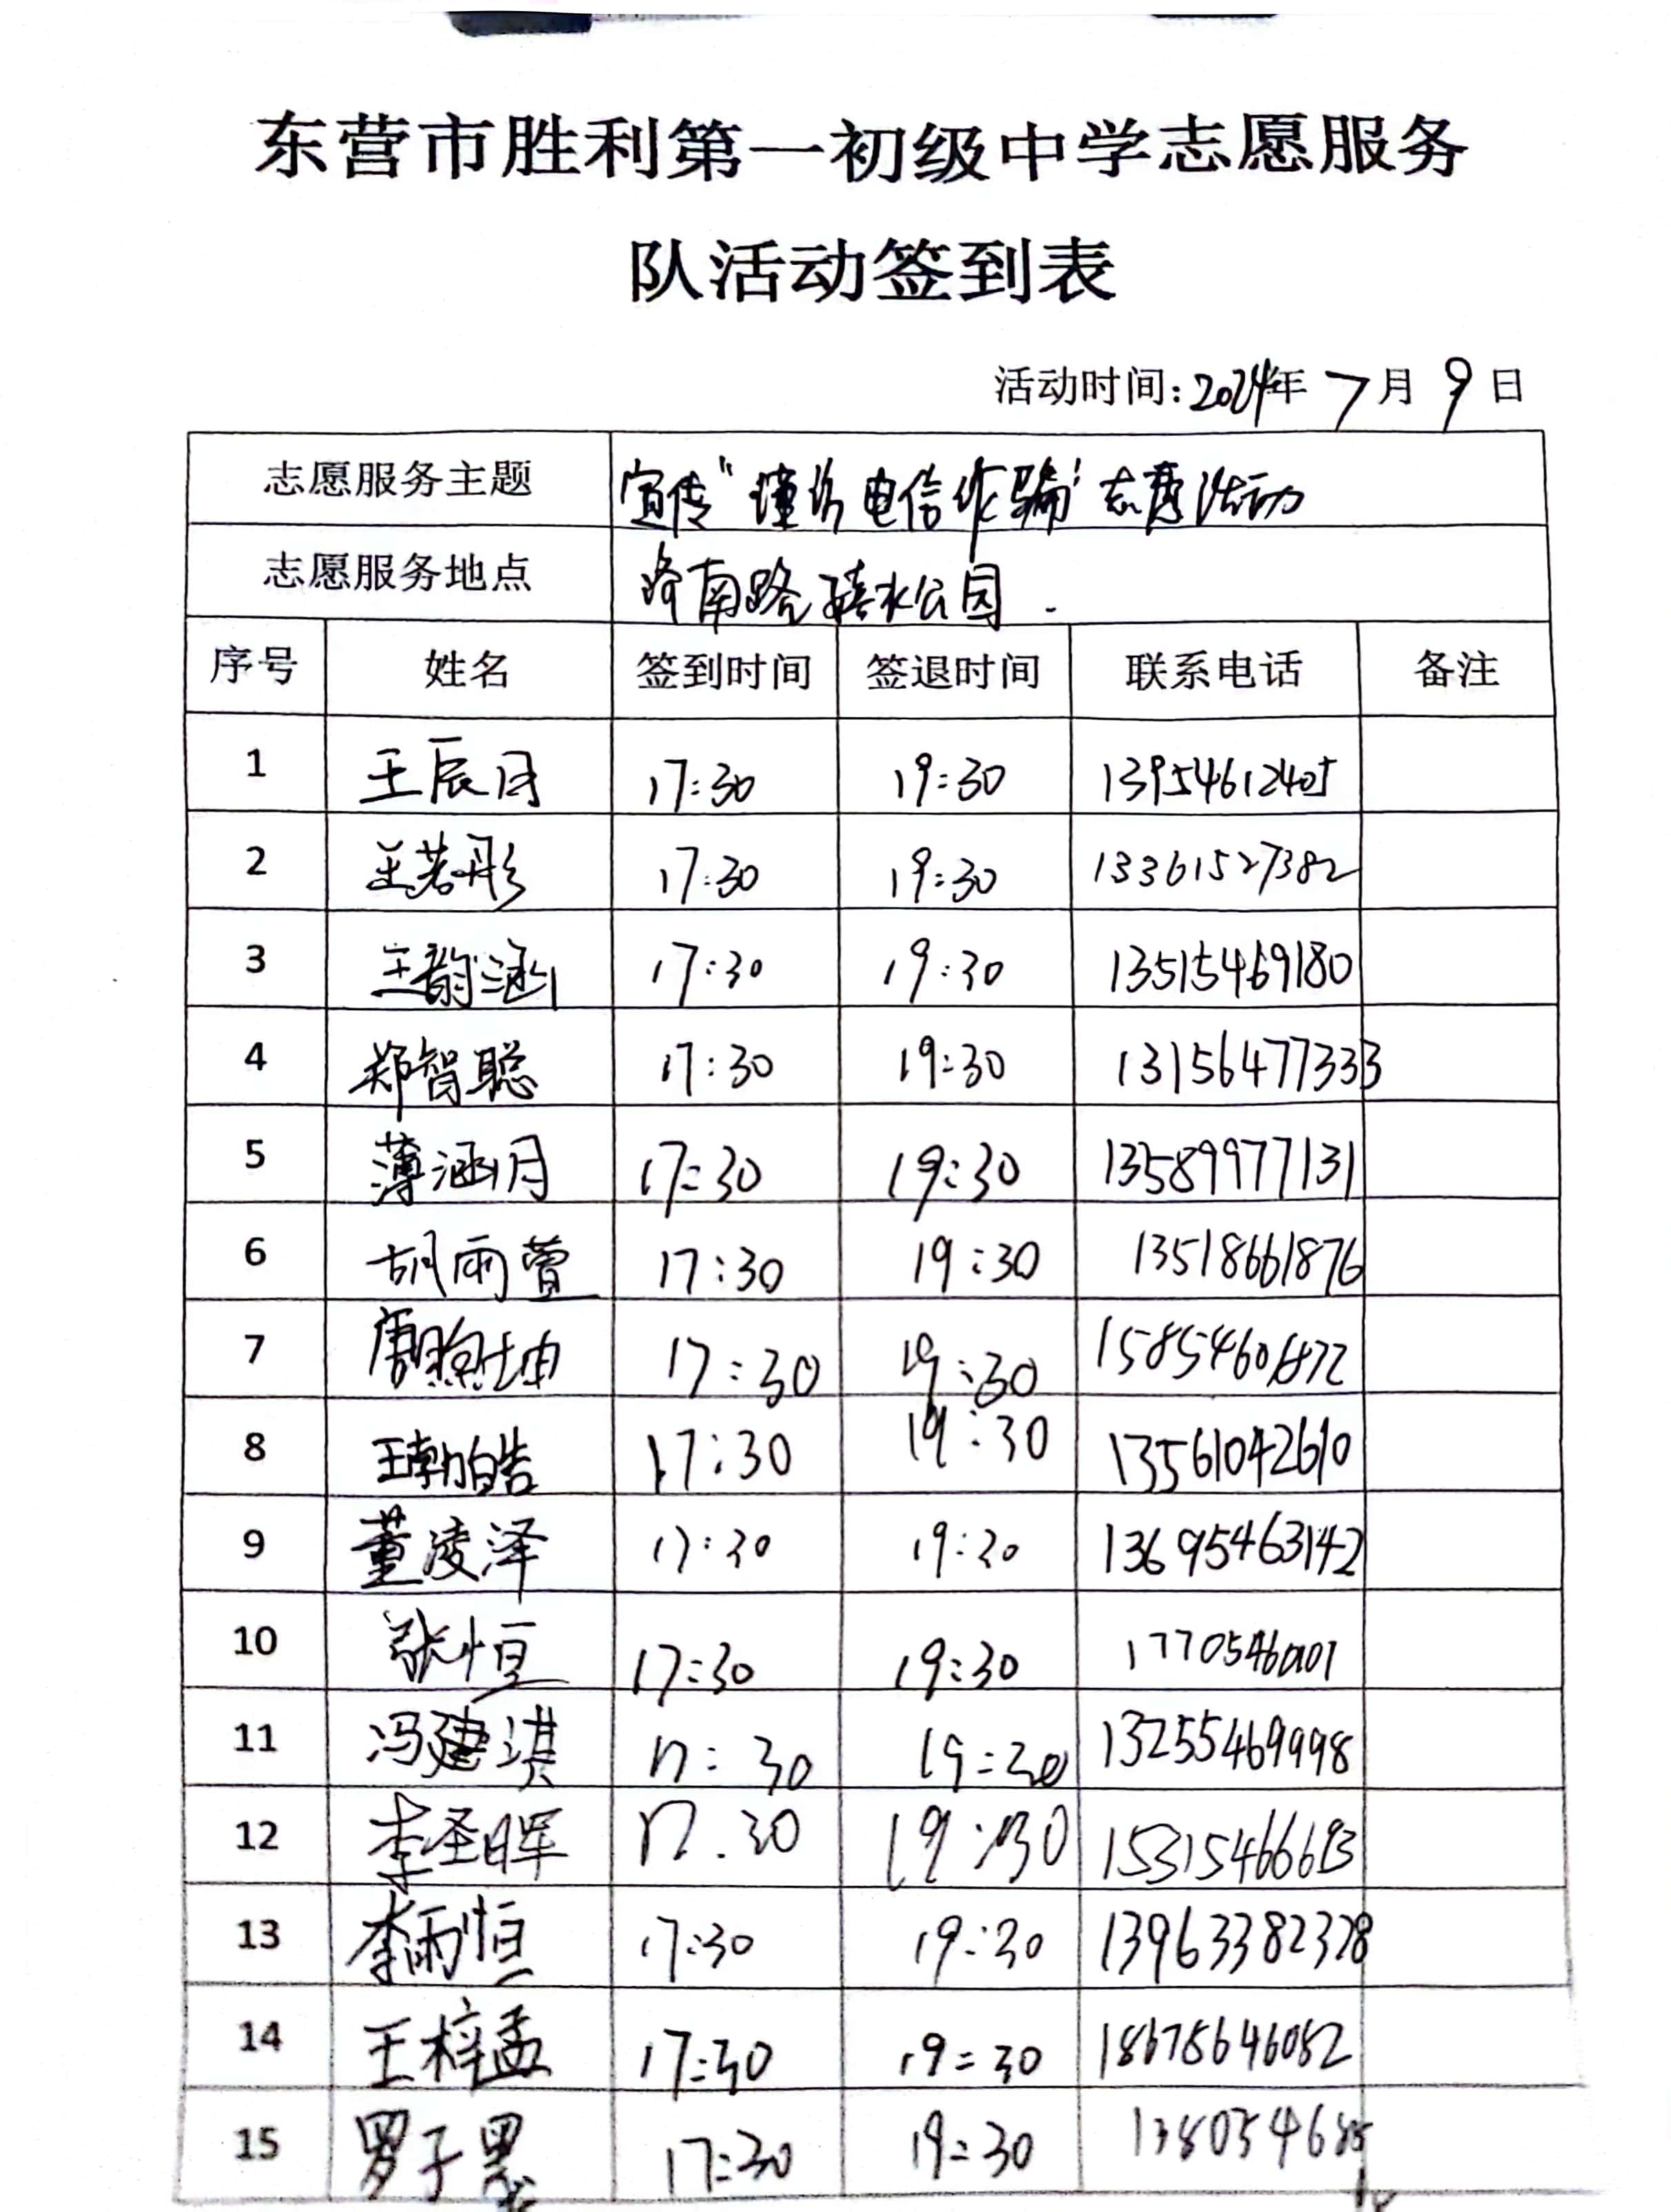 东营市胜利第一初级中学志愿服务
队活动签到表
活动时间：2024年 7月 9日
志愿服务主题 宣传“谨防电信诈骗”志愿活动
志愿服务地点 济南路 水公园.
序号 姓名 签到时间 签退时间 联系电话 备注
1 王辰月 17:30 19:30 13954612405
2 王若彤 17:30 19:30 13361527382
3 王韵涵 17:30 19:30 13515469180
4 郑智聪 17:30 19:30 13156477333
5 薄涵月 17:30 19:30 13589977131
6 胡雨萱 17:30 19:30 13518661876
7 唐煦坤 17:30 19:30
8 王勃皓 17:30 19:30 13561042610
9 董凌泽 17:30 19:30 13695463142
10 张恒 17:30 19:30
11 冯建淇 17:30 19:30 13255469998
12 李圣晖 17:30 19:30
13 李雨恒 17:30 19:30 13963382328
14 王梓孟 17:30 19:30 18678646082
15 罗子 17:30 19:30